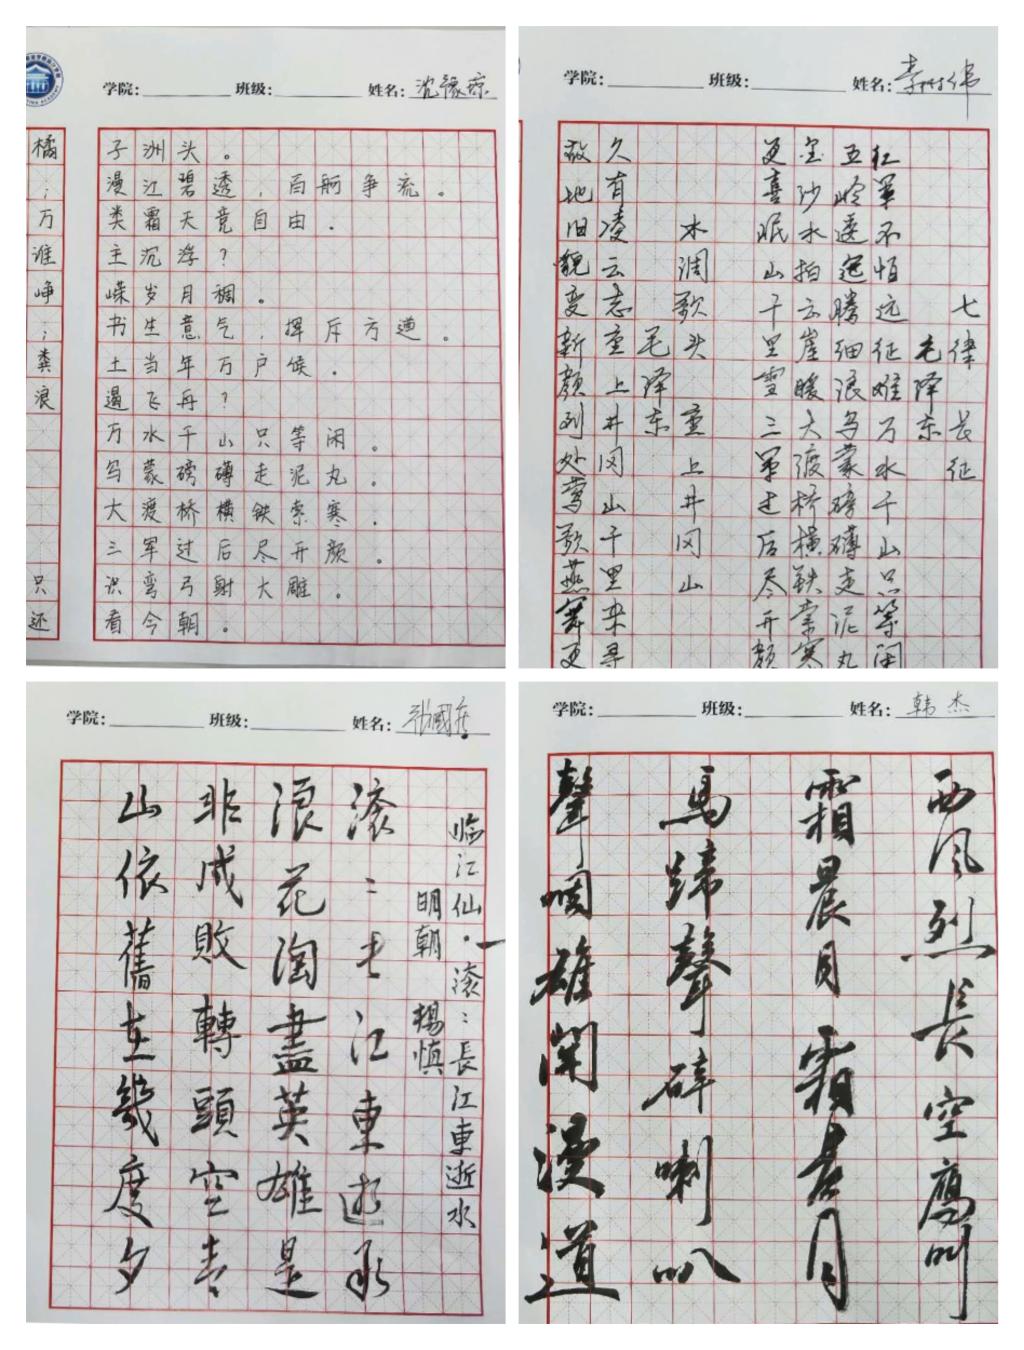 学院: 班级: 姓名:
橘 子洲头。
; 漫江碧透,百舸争流。
万 类霜天竞自由.
谁 主沉浮?
峥 嵘岁月稠。
; 书生意气,挥斥方遒。
粪 土当年万户候.
浪 遏飞舟?
万水千山只等闲。
乌蒙磅礴走泥丸。
大渡桥横铁索寒.
三军过后尽开颜。
只 识弯弓射大雕。
还 看今朝。
学院: 班级: 姓名:
七律 长征
毛泽东
红军不怕远征难万水千山只等闲
五岭逶迤腾细浪乌蒙磅礴走泥丸
金沙水拍云崖暖大渡桥横铁索寒
更喜岷山千里雪三军过后尽开颜
水调歌头 重上井冈山
毛泽东
久有凌云志重上井冈山千里来寻
故地旧貌变新颜到处莺歌燕舞更
学院: 班级: 姓名:
临江仙·滚:長江東逝水
明朝 楊慎
滚:长江東逝水
浪花淘盡英雄是
非成敗轉頭空青
山依舊在幾度夕
学院: 班级: 姓名: 韩杰
西风烈長空鴈叫
霜晨月霜晨月
馬蹄聲碎喇叭
聲咽雄関漫道